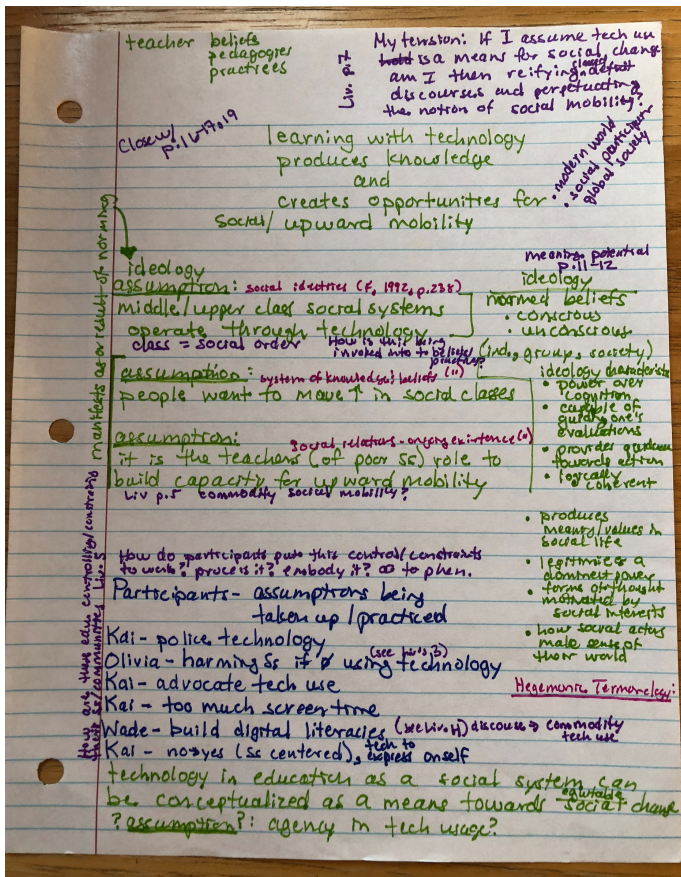 teacher beliefs
pedagogies
practices
Liv. p.17
My tension: If I assume tech use
is a means for social change
am I then reifying deficit
discourses and perpetuating
the notion of social mobility?
Close w/
p. 16-17, 19
learning with technology
produces knowledge
and
creates opportunities for
social/upward mobility
• modern world
• social participation
global society
manifests as or result of norming
ideology
assumption: social identities (F, 1992, p.238)
middle/upper class social systems
operate through technology
class = social order
How is this being
invoked into to beliefs/
practices?
assumption: system of knowledge & beliefs (")
people want to move ↑ in social classes
assumption: social relations - ongoing existence (")
it is the teachers (of poor Ss) role to
build capacity for upward mobility
Liv p.5 commodify social mobility?
meaning potential
p. 11-12
ideology
normed beliefs
• conscious
• unconscious
(ind., group, society)
ideology characteristics
• power over
cognition
• capable of
guiding one's
evaluations
• provides guidance
towards action
• logically
coherent
• produces
meaning/values in
social life
• legitimizes a
dominant power
• forms of thought
motivated by
social interests
• how social actors
make sense of
their world
Hegemonic Termonology:
How are these educ controlling/constraining
their Ss/communities? Liv. 5
How do participants put this control/constraints
to work? process it? embody it? to phen.
Participants - assumptions being
taken up/practiced
Kai - police technology
Olivia - harming Ss if Ø using technology
Kai - advocate tech use
Kai - too much screentime
Wade - build digital literacies (see Liv. 4) discourse → commodify
tech use
Kai - no → yes (ss centered), tech to
express onself
technology in education as a social system can
be conceptualized as a means towards equitable social change
? assumption?: agency in tech usage?